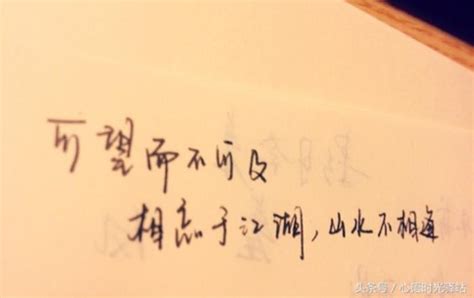 可望而不可及
相忘于江湖，山水不相逢
头条号／心语时光驿站